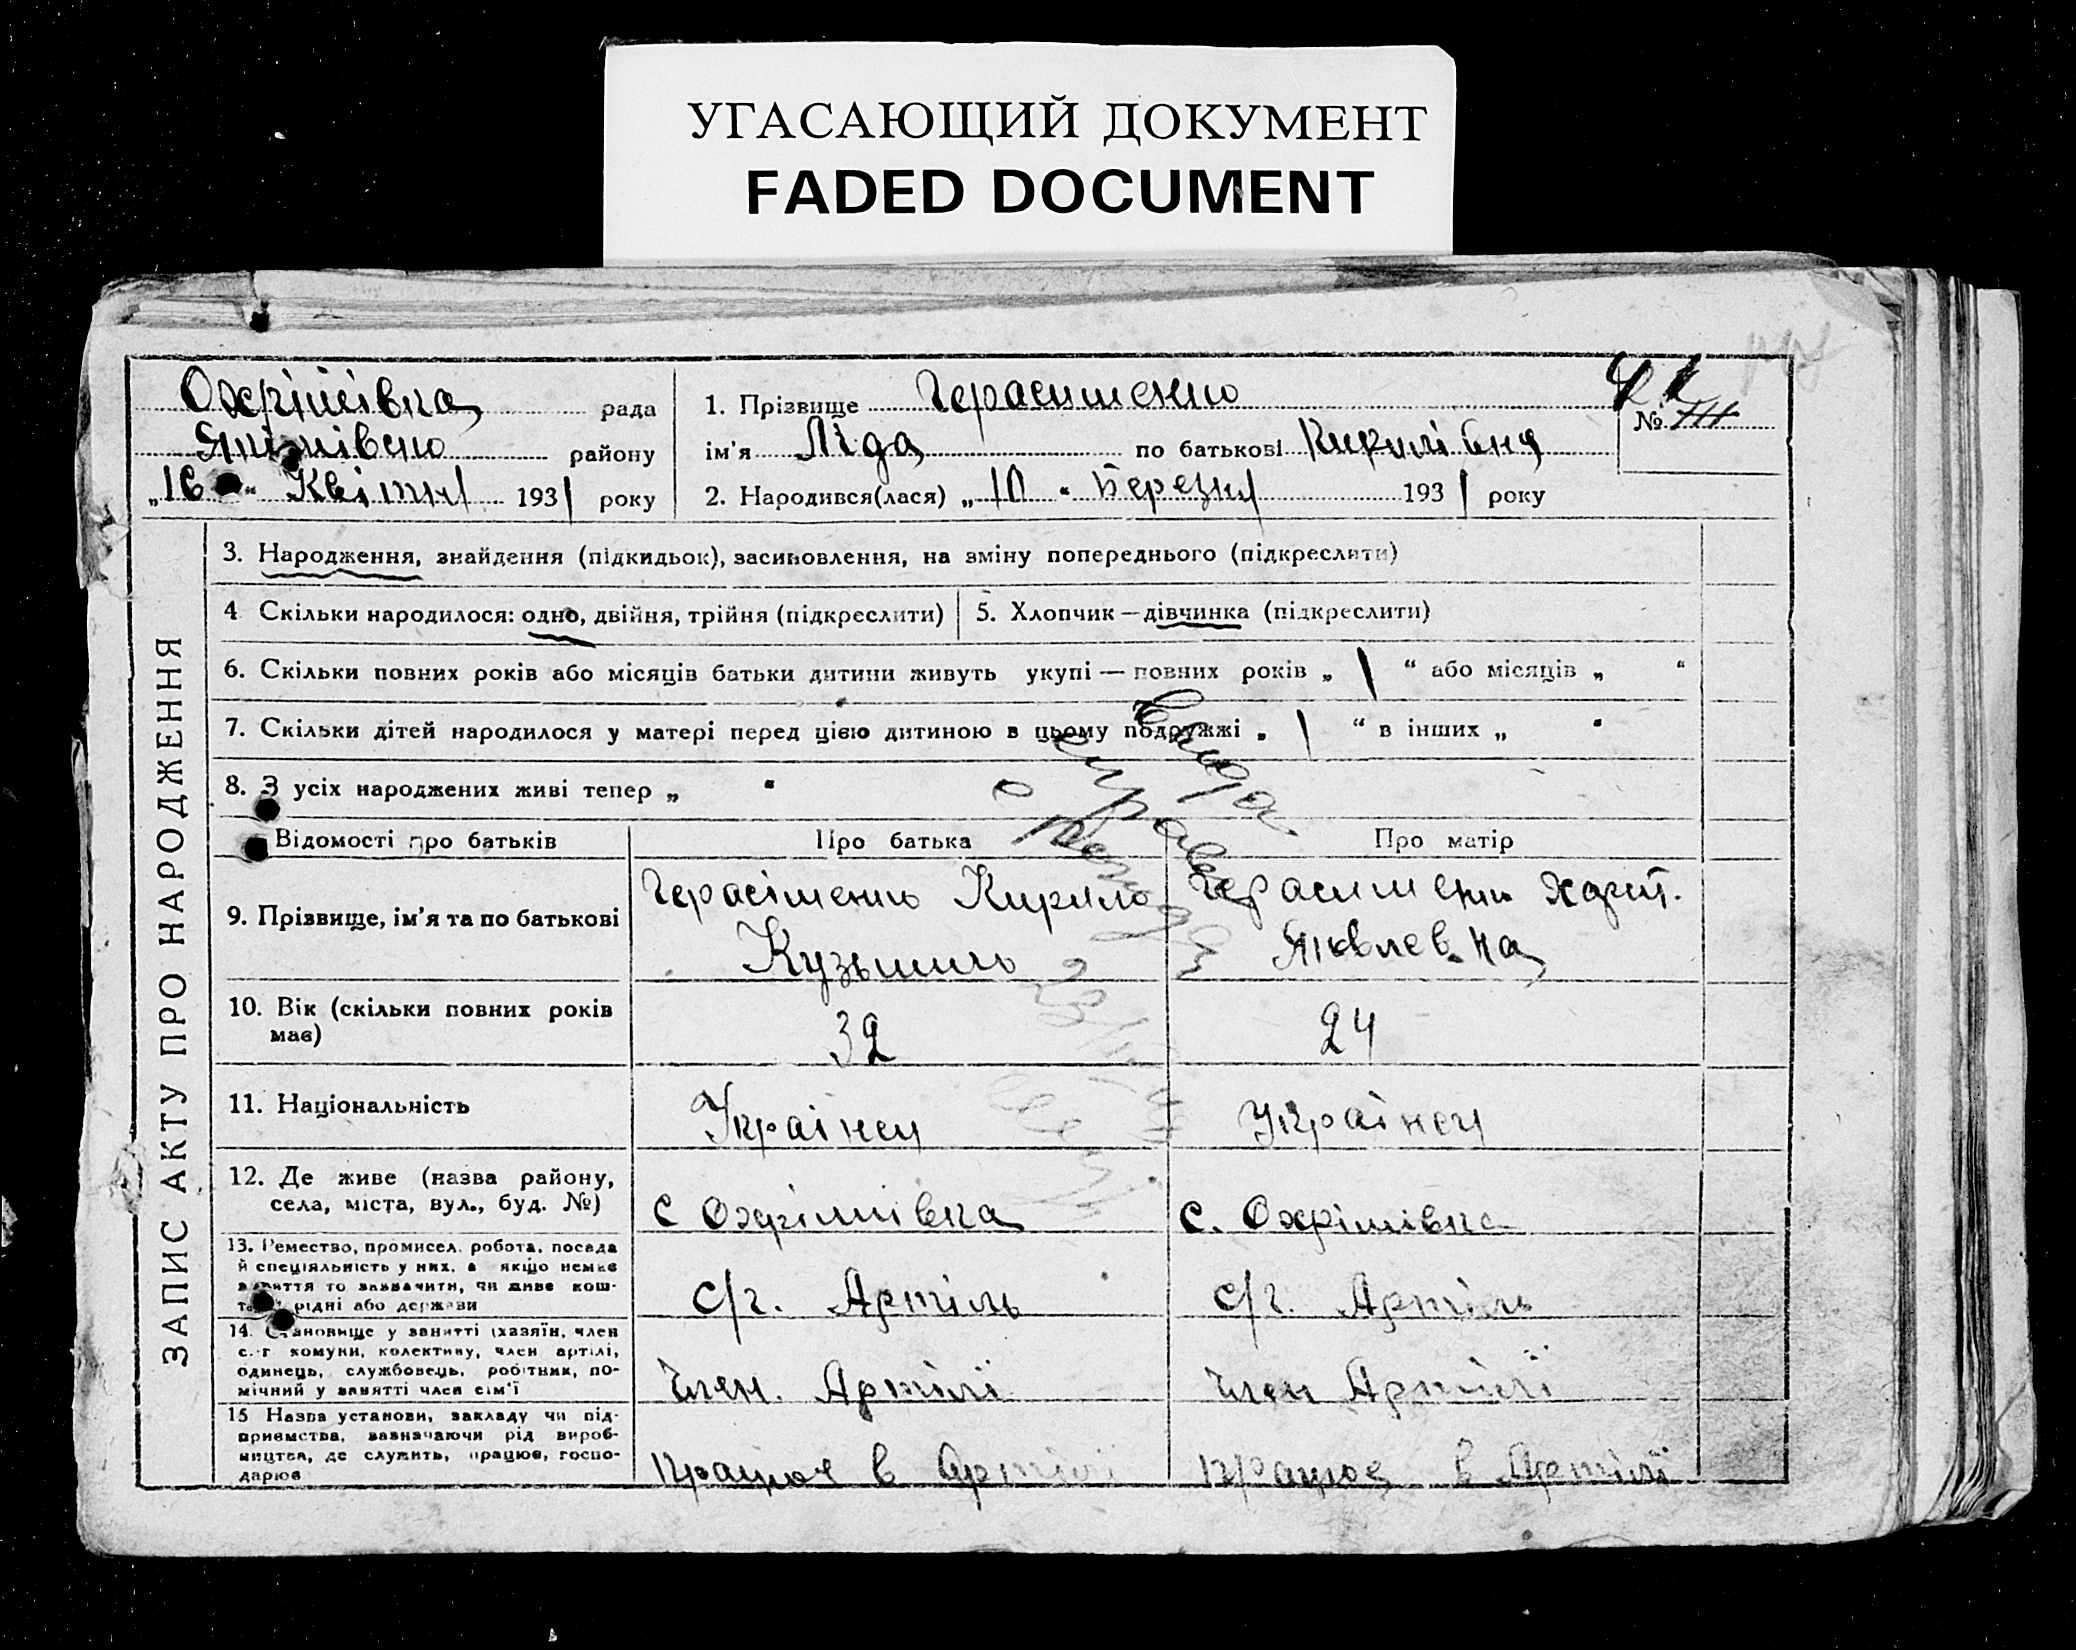 УГАСАЮЩИЙ ДОКУМЕНТ
FADED DOCUMENT
Охрімівка рада
району
„16“ Квітня 1931 року
1. Прізвище Герасименко
ім'я Ліда по батькові Кирилівна
2. Народився(лася) „10“ Березня 1931 року
№
ЗАПИС АКТУ ПРО НАРОДЖЕННЯ
3. Народження, знайдення (підкидьок), засиновлення, на зміну попереднього (підкреслити)
4 Скільки народилося: одно, двійня, трійня (підкреслити)
5. Хлопчик — дівчинка (підкреслити)
6. Скільки повних років або місяців батьки дитини живуть укупі — повних років „ 1 “ або місяців „ “
7. Скільки дітей народилося у матері перед цією дитиною в цьому подружжі „ 1 “ в інших „ “
8. З усіх народжених живі тепер „ “
Відомості про батьків
Про батька
Про матір
9. Прізвище, ім'я та по батькові
Герасіменко Кирило
Кузьмич
Герасименко
Яковлевна
10. Вік (скільки повних років
має)
32
24
11. Національність
Українец
Українец
12. Де живе (назва району,
села, міста, вул., буд. №)
с Охрімівка
с. Охрімівка
13. Ремество, промисел, робота, посада
й спеціяльність у них, а якщо немає
заняття то зазначити, чи живе кош-
рідні або держави
с/г. Артіль
с/г. Артіль
14. Становище у занятті (хазяїн, член
с.-г комуни, колективу, член артілі,
одинець, службовець, робітник, по-
мічний у занятті член сім'ї
Член. Артілі
Член Артілі
15 Назва установи, закладу чи під-
приємства, зазначаючи рід вироб-
ництва, де служить, працює, госпо-
дарює
Працює в Артілі
працює в Артілі